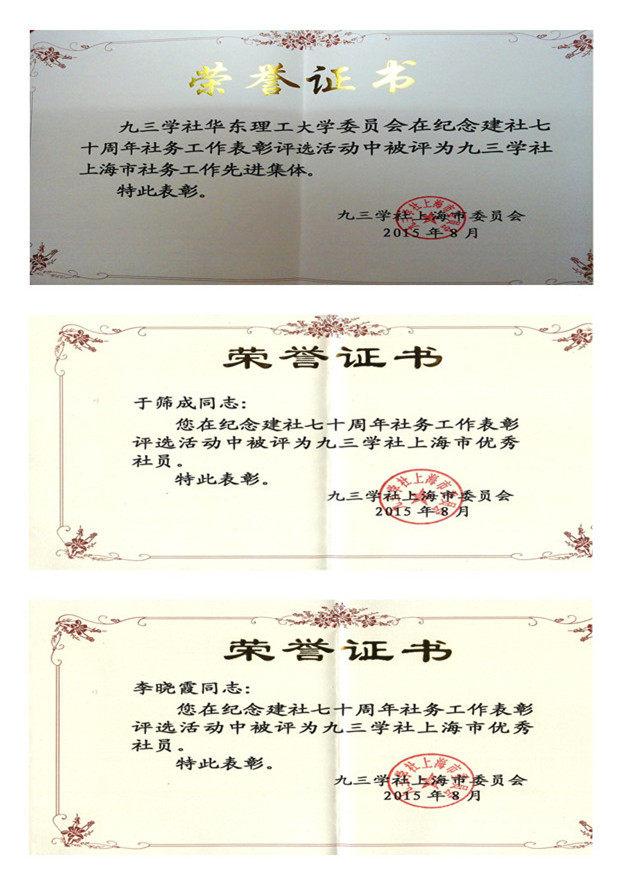 荣誉证书
九三学社华东理工大学委员会在纪念建社七
十周年社务工作表彰评选活动中被评为九三学社
上海市社务工作先进集体。
特此表彰。
九三学社上海市委员会
2015 年 8 月
荣誉证书
于筛成同志：
您在纪念建社七十周年社务工作表彰
评选活动中被评为九三学社上海市优秀
社员。
特此表彰。
九三学社上海市委员会
2015 年 8 月
荣誉证书
李晓霞同志：
您在纪念建社七十周年社务工作表彰
评选活动中被评为九三学社上海市优秀
社员。
特此表彰。
九三学社上海市委员会
2015 年 8 月